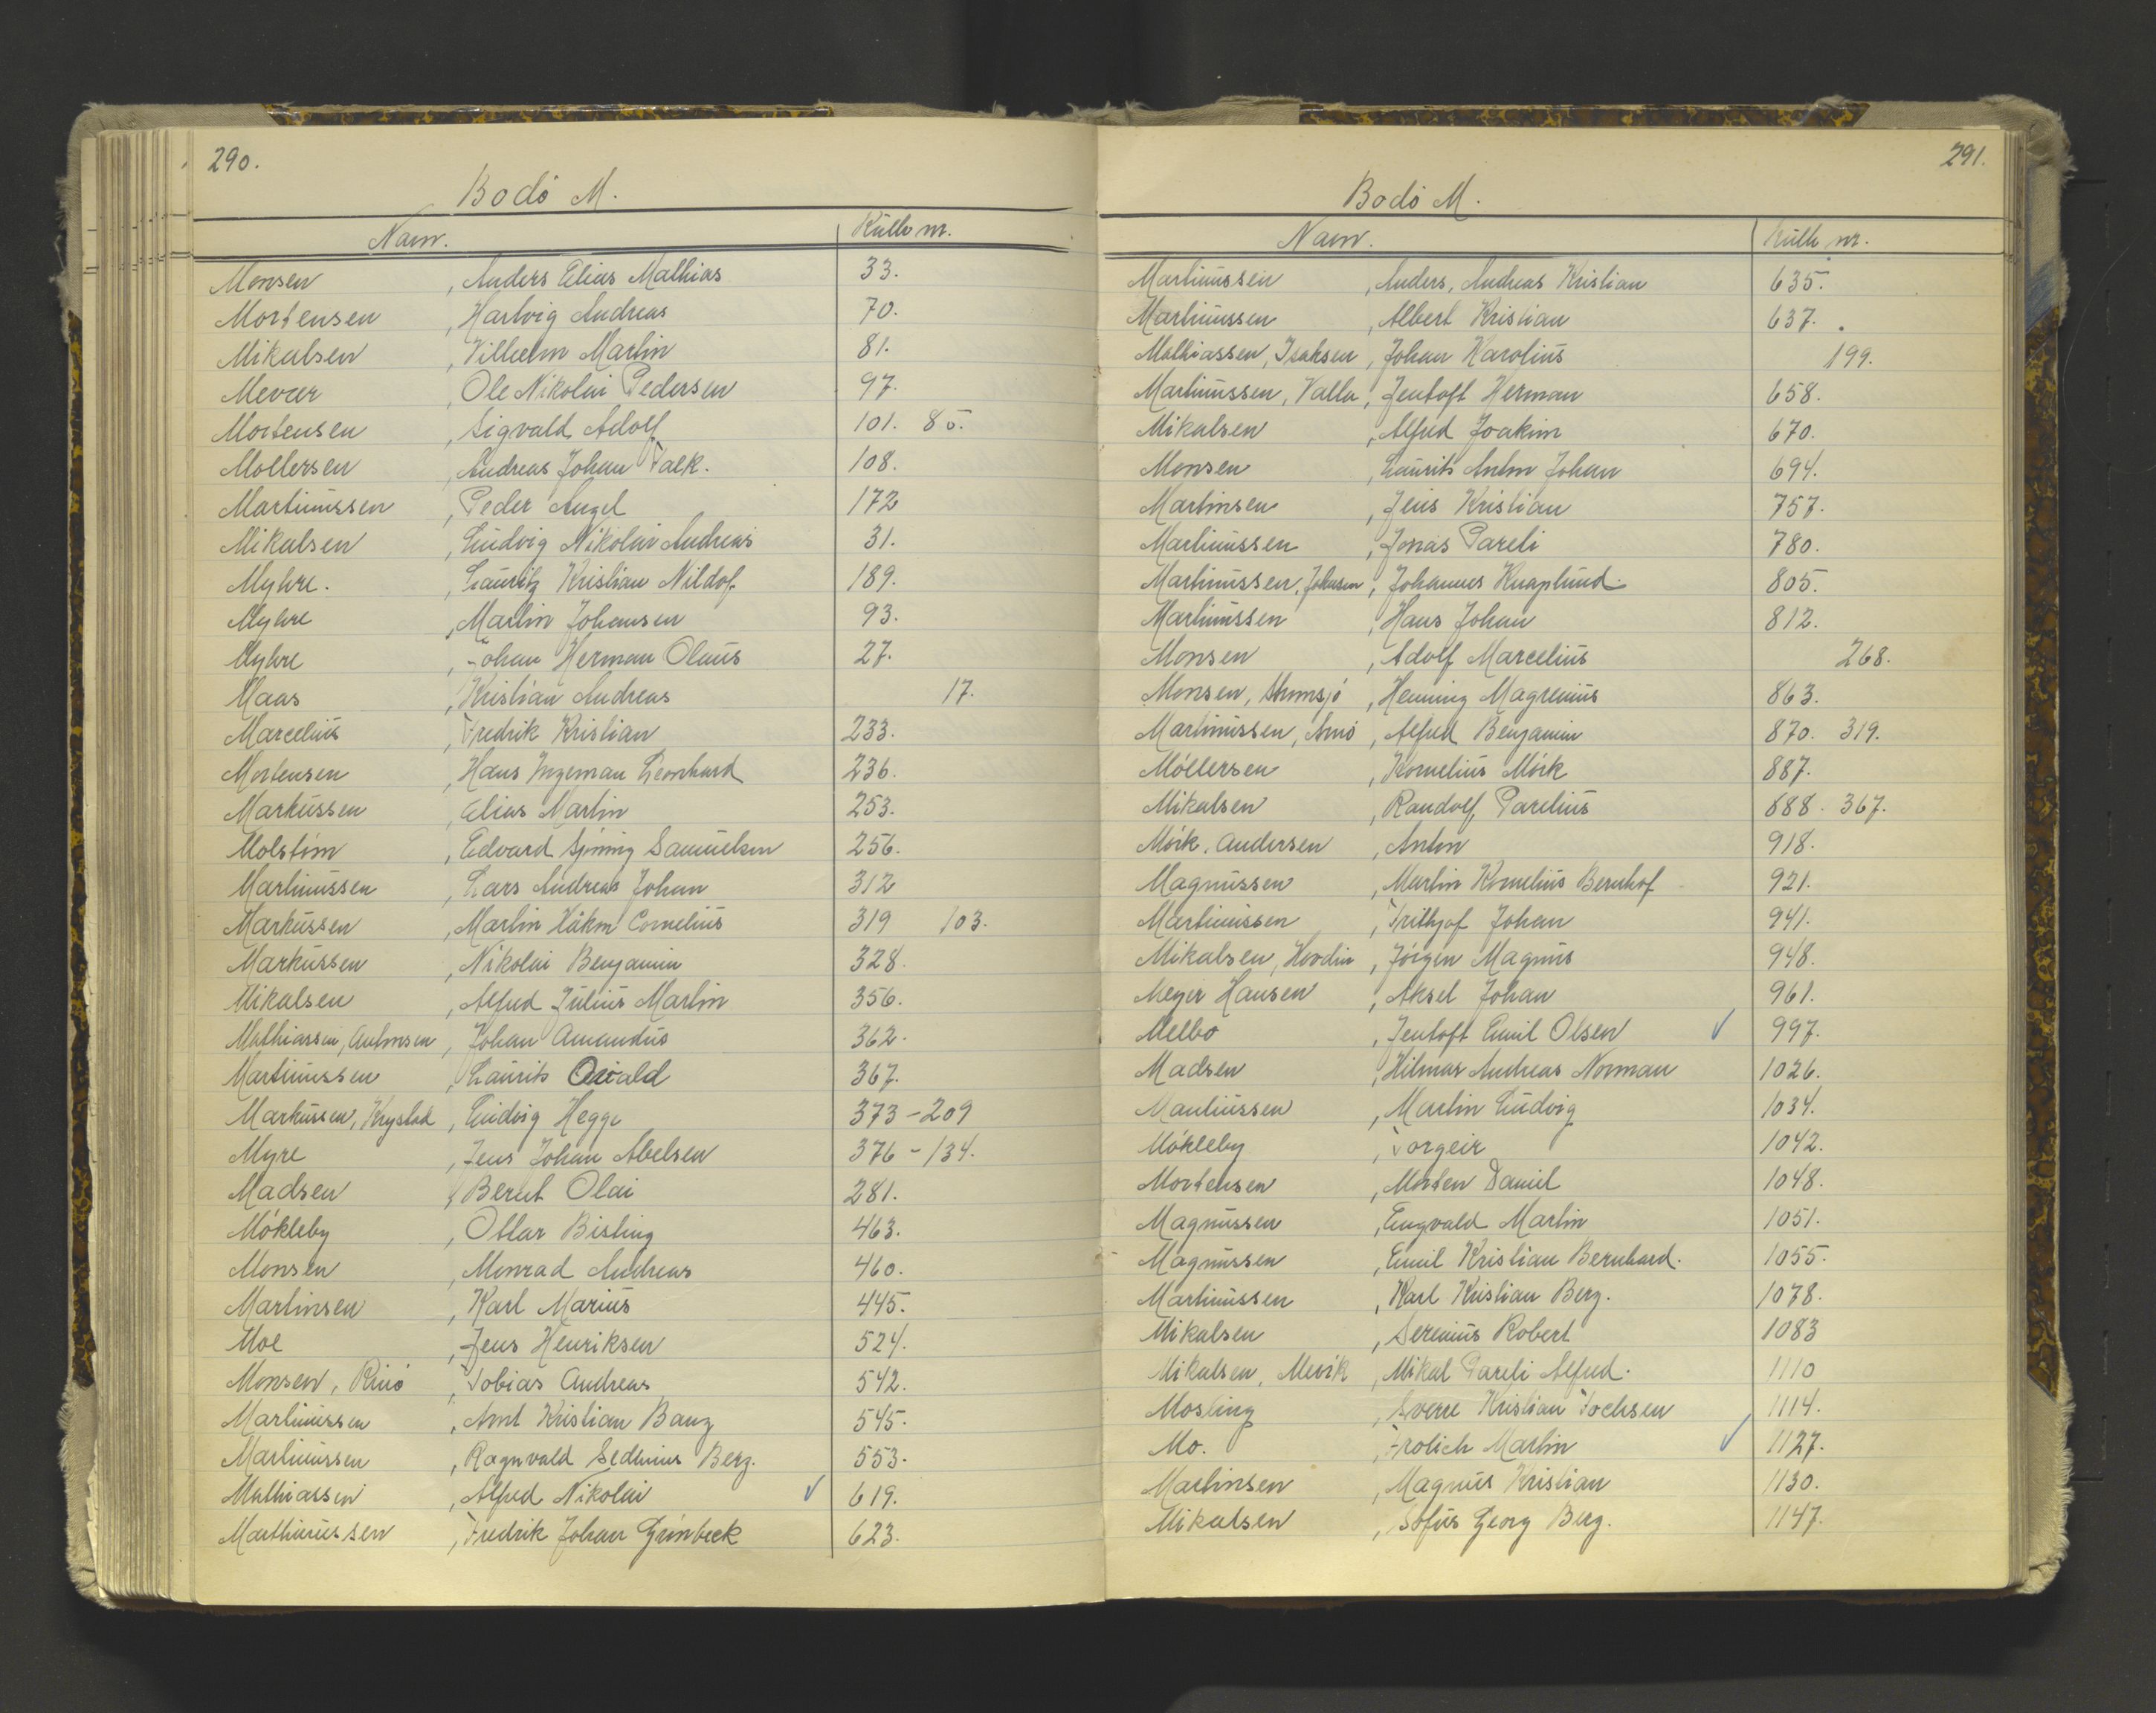 290.
Bodö M.
Navn. Rulle nr.
Monsen , Anders Elias Mathias 33.
Mortensen , Hartvig Andreas 70.
Mikalsen , Vilhelm Martin 81.
Mevær , Ole Nikolai Pedersen 97.
Mortensen , Sigvald Adolf 101. 85.
Mollersen , Andreas Johan Falk. 108.
Martinussen , Peder Angel 172
Mikalsen , Ludvig Nikolai Andreas 31.
Myhre. , Lauritz Kristian Nildof 189.
Myhre , Martin Johansen 93.
Myhre , Johan Herman Olaus 27.
Maas , Kristian Andreas 17.
Marcelius , Fredrik Kristian 233.
Mortensen , Hans Ingeman Leonhard 236.
Markussen , Elias Martin 253.
Molstöm , Edvard Sjöning Samuelsen 256.
Martinussen , Lars Andreas Johan 312
Markussen , Martin Håkon Cornelius 319 103.
Markussen , Nikolai Benjamin 328.
Mikalsen , Alfred Julius Martin 356.
Mathiassen, Antonsen , Johan Amandus 362.
Martinussen , Laurits Osvald 367.
Markussen, Krystad , Ludvig Hegge 373-209
Myre , Jens Johan Abelsen 376-134.
Madsen , Bernt Olai 281.
Mökleby , Ottar Bisting 463.
Monsen , Monrad Andreas 460.
Martinsen , Karl Marius 445.
Moe , Jens Henriksen 524.
Monsen, Rinö , Tobias Andreas 542.
Martinussen , Arnt Kristian Bang 545.
Martinussen , Ragnvald Sedenius Berg. 553.
Mathiassen , Alfred Nikolai ✓ 619.
Marthinussen , Fredrik Johan Grönbeck 623.
291.
Bodö M.
Navn. Rulle nr.
Martinussen , Anders, Andreas Kristian 635.
Martinussen , Albert Kristian 637.
Mathiassen, Isaksen , Johan Karolius 199.
Martinussen, Valla , Jentoft Herman 658.
Mikalsen , Alfred Joakim 670.
Monsen , Laurits Anton Johan 694.
Martinsen , Jens Kristian 757.
Martinussen , Jonas Pareli 780.
Martinussen, Johansen , Johannes Knaplund. 805.
Martinussen , Hans Johan 812.
Monsen , Adolf Marcelius 268.
Monsen, Storsjö , Henning Magrenius 863.
Martinussen, Arnö , Alfred Benjamin 870. 319.
Möllersen , Kornelius Mörk 887.
Mikalsen , Randolf Parelius 888. 367.
Mörk. Andersen , Anton 918.
Magnussen , Martin Kornelius Bernhof 921.
Martinussen , Frithjof Johan 941.
Mikalsen, Hovdin , Jörgen Magnus 948.
Meyer Hansen , Aksel Johan 961.
Melbo , Jentoft Emil Olsen ✓ 997.
Madsen , Hilmar Andreas Norman 1026.
Mauliussen , Martin Ludvig 1034.
Mökleby , Torgeir 1042.
Mortensen , Morten Daniel 1048.
Magnussen , Engvald Martin 1051.
Magnussen , Emil Kristian Bernhard. 1055.
Martinussen , Karl Kristian Berg. 1078.
Mikalsen , Serenius Robert 1083
Mikalsen, Mevik , Mikal Pareli Alfred. 1110
Mosling , Sverre Kristian Tochsen 1114.
Mo. , Frolich Martin ✓ 1127.
Martinsen , Magnus Kristian 1130.
Mikalsen , Sofus Georg Berg. 1147.